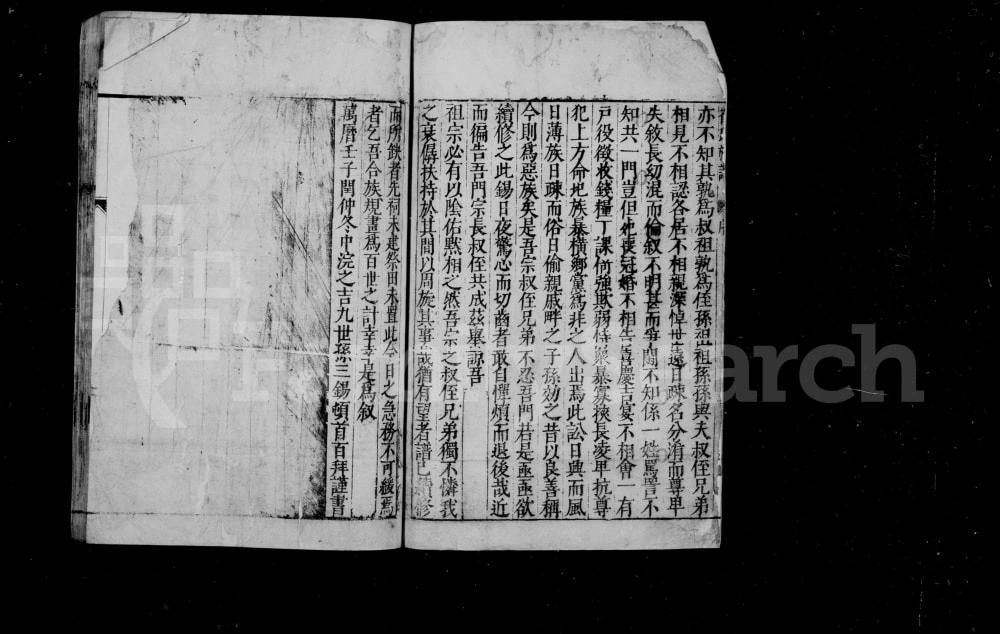 亦不知其孰為叔祖孰為侄孫祖祖孫孫與夫叔侄兄弟
相見不相認各居不相親深悼世遠日疎名分淆而尊卑
失敘長幼混而倫叙不明甚而爭鬪不知係一姓罵詈不
知共一門豈但丧冠婚不相告喜慶吉宴不相會一有
戶役徵收錢糧丁課倚強欺弱恃衆暴寡挾長凌卑抗尊
犯上方命圯族暴橫鄉黨為非之人出焉此訟日興而風
日薄族日疎而俗日偷親戚畔之子孫効之昔以良善稱
今則為惡族矣是吾宗叔侄兄弟不忍吾門若是亟亟欲
續修之此錫日夜驚心而切齒者敢自憚煩而退後哉近
而徧告吾門宗長叔侄共成茲舉諒吾
祖宗必有以陰佑黙相之然吾宗之叔侄兄弟獨不憐我
之衰僝扶持於其間以周旋其事哉猶有望者譜已續修
而所缺者先祠未建祭田未置此今日之急務不可緩焉
者乞吾合族規畫為百世之計幸幸是為叙
萬曆壬子閏仲冬中浣之吉九世孫三錫頓首百拜謹書